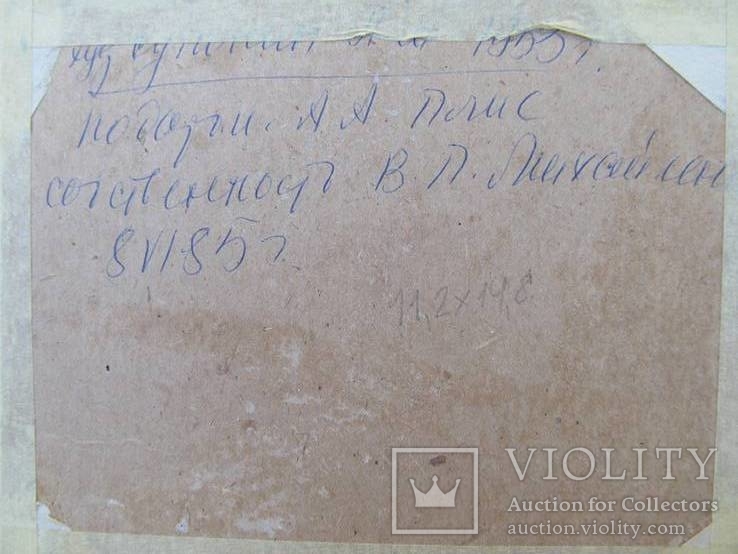 худ 1955 г.
А. А. Плис
собственность В. П. Михайлен
8 VI 85 г.
11,2 x 14,8
VIOLITY
Auction for Collectors
auction.violity.com